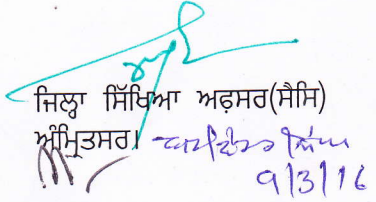 ਜਿਲ੍ਹਾ ਸਿੱਖਿਆ ਅਫ਼ਸਰ(ਸੈਸਿ)
ਅੰਮ੍ਰਿਤਸਰ।
9/3/16